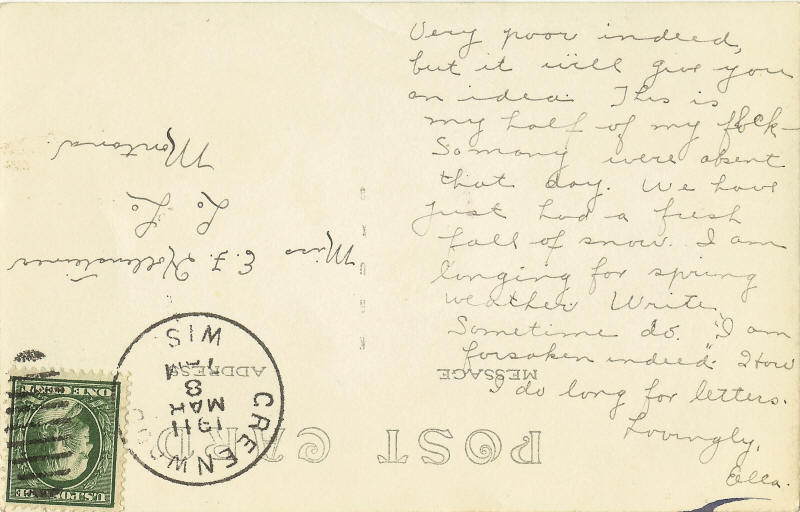 Very poor indeed,
but it will give you
an idea. This is
my half of my flock—
So many were absent
that day. We have
just had a fresh
fall of snow. I am
longing for spring
weather Write
Sometime do. "I am
forsaken indeed". How
I do long for letters.
Lovingly,
Ella.
Miss E. F.
Lo Lo
Montana.
POST CARD
MESSAGE
ADDRESS
GREENWOOD
MAR
8
1911
WIS
U.S. POSTAGE
ONE CENT